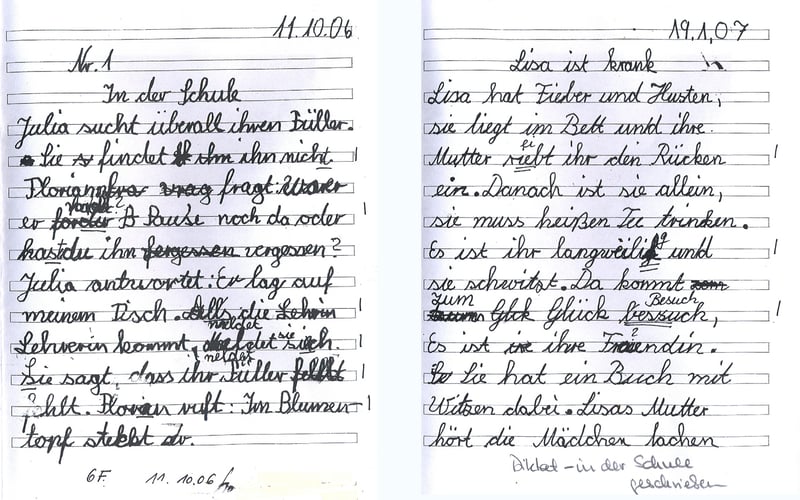 11.10.06
Nr. 1
In der Schule
Julia sucht überall ihren Füller.
Sie findet ihn nicht.
Florian fragt: War
er vor der Pause noch da oder
hast du ihn vergessen?
Julia antwortet: Er lag auf
meinem Tisch. die
Lehrerin kommt, meldet sie sich.
Sie sagt, dass ihr Füller
fehlt. Florian ruft: Im Blumen-
topf steckt
6F. 11.10.06
19.1.07
Lisa ist krank
Lisa hat Fieber und Husten,
sie liegt im Bett und ihre
Mutter reibt ihr den Rücken
ein. Danach ist sie allein,
sie muss heißen Tee trinken.
Es ist ihr langweilig und
sie schwitzt. Da kommt
zum Glück Besuch
bessuch,
Es ist ihre Freundin.
Sie hat ein Buch mit
Witzen dabei. Lisas Mutter
hört die Mädchen lachen
Diktat - in der Schule
geschrieben